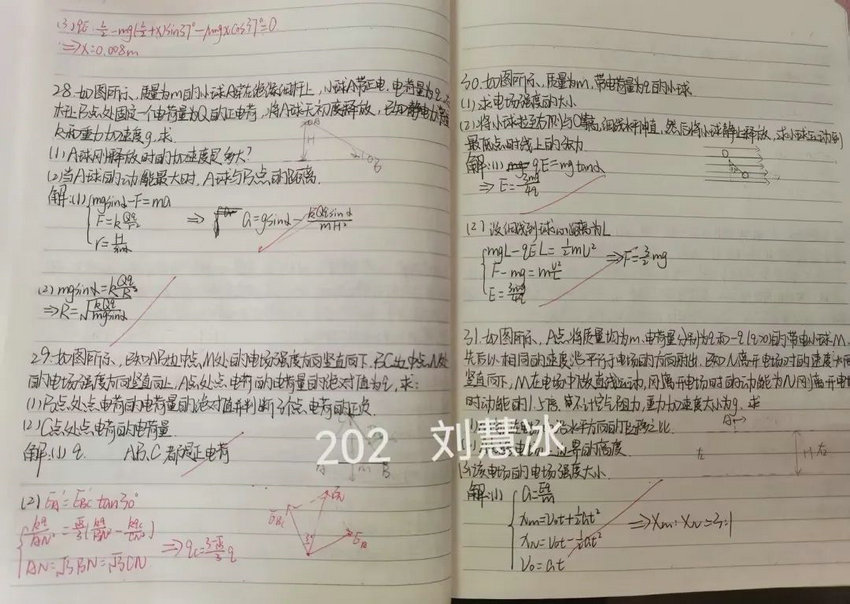 (3) qE·L/2-mg(L/2+x)sin37°-μmgxcos37°=0
⇒x=0.008m
28.如图所示,质量为m的小球A穿在绝缘细杆上,小球A带正电,电荷量为q,在
杆上B点处固定一个电荷量为Q的正电荷,将A球无初速释放,已知静电力常量
k和重力加速度g,求
(1)A球刚释放时的加速度是多大?
(2)当A球的动能最大时,A球与B点的距离.
解:(1) mgsinα-F=ma
F=kQq/r²
r=H/sinα
⇒ a=gsinα-kQqsin²α/mH²
(2) mgsinα=kQq/R²
⇒R=√kQq/mgsinα
29.如图所示,已知AB边中点,M处的电场强度方向竖直向下,BC边中点N处
的电场强度方向竖直向上,A点处点电荷的电荷量的绝对值为q,求:
(1)B点处点电荷的电荷量的绝对值并判断3个点电荷的正负
(2)C点处点电荷的电荷量
解:(1) q A、B、C都是正电荷
(2) EA'=EBC'tan30°
kq/AN²=√3/3(kq/BN²-kqc/CN²)
AN=√3BN=√3CN
⇒qc=3-√3/3 q
30.如图所示,质量为m,带电荷量为q的小球
(1)求电场强度的大小
(2)将小球拉至右侧与O等高,细线水平伸直,然后将小球静止释放,求小球运动到
最低点时线上的拉力
解:(1) qE=mgtanα
⇒E=3mg/4q
(2)设细线到球心距离为L
mgL-qEL=½mv²
F-mg=mv²/L
E=3mg/4q
⇒F=3/2mg
31.如图所示,A点将质量均为m,电荷量分别为q和-q(q>0)的带电小球M、
先后以相同的速度沿平行于电场的方向射出,已知N离开电场时的速度方向
竖直向下,M在电场中做直线运动,刚离开电场时的动能为N刚离开电
时动能的1.5倍,不计空气阻力,重力加速度大小为g,求
水平方向的位移之比
上边界的高度
(3)该电场的电场强度大小
解:(1) a=Eq/m
xM=v0t+½at²
xN=v0t-½at²
v0=at
⇒xM:xN=3:1
202 刘慧冰